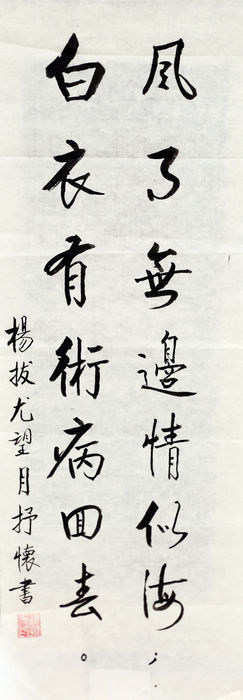 風月無邊情似海；
白衣有術病回春。
楊拔尤望月抒懷書